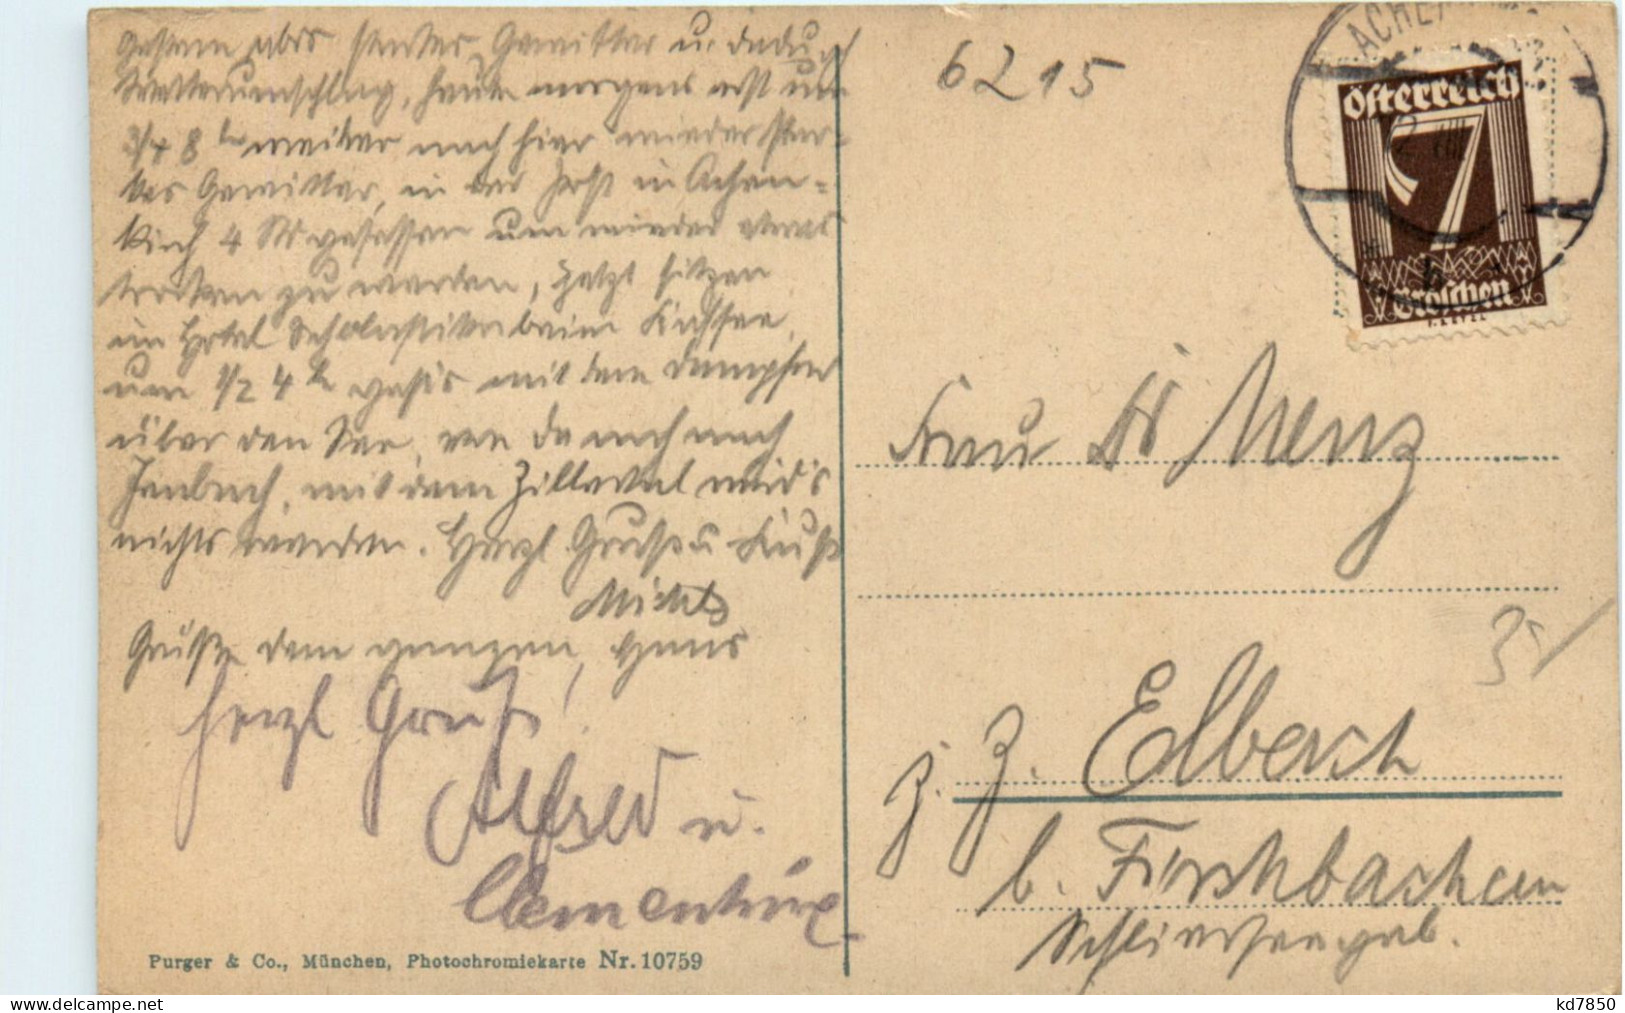 Gestern abds starkes Gewitter u. dadurch
Wetterumschlag, heute morgens erst um
3/4 8 h weiter nach hier wieder star-
kes Gewitter, in der Post in Achen-
kirch 4 St gesessen um wieder etwas
trocken zu werden, jetzt sitzen
im Hotel Scholastika beim Kaffee,
um 1/2 4 h geht's mit dem Dampfer
über den See, von da nach
Jenbach, mit dem Zillertal wird's
nichts werden. Herzl Grüße u Kuß
Grüße dem ganzen Haus
herzl Gruß!
Alfred u.
Clementine
Purger & Co., München, Photochromiekarte Nr. 10759
6215
ACHEN
Österreich
7
Groschen
Frau Menz
35
z. Z. Elbach
b. Fischbachau
Schlierseegeb.
kd7850